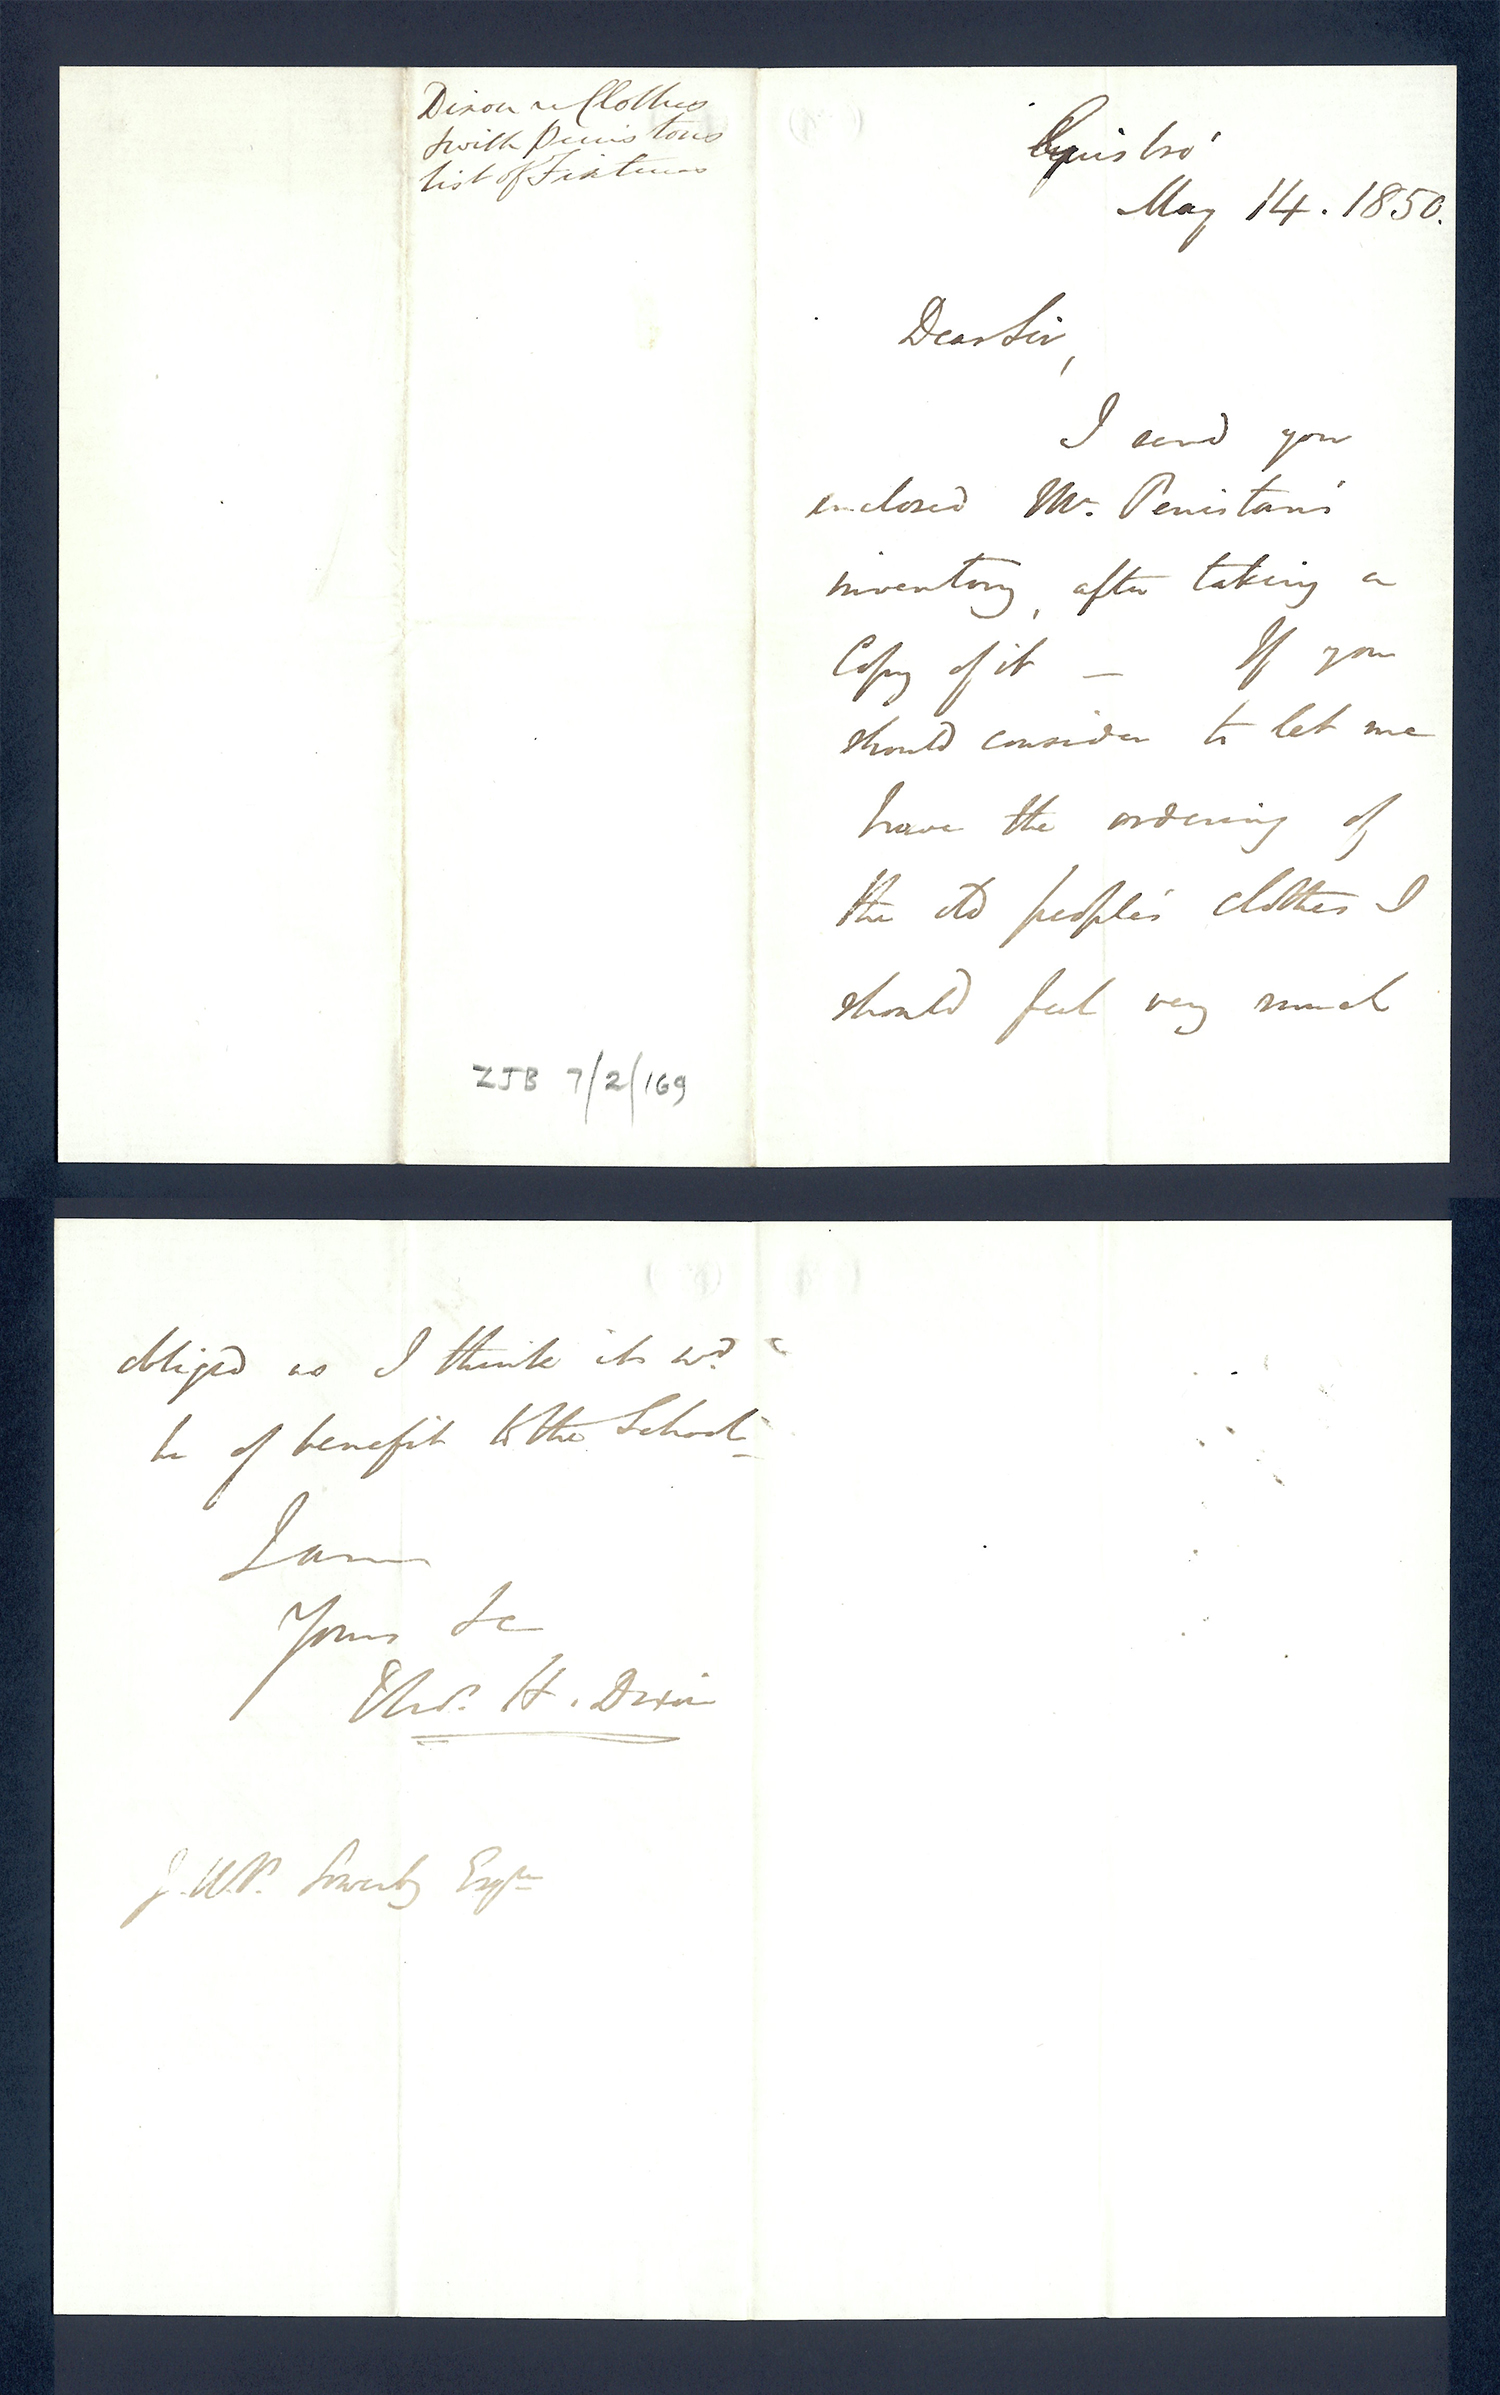 Dixon re Clothes
& with Penistons
list of Fixtures
ZJB 7/2/169
Guisbro'
May 14. 1850.
Dear Sir,
I send you
enclosed Mr. Penistan's
inventory, after taking a
Copy of it — If you
should consider to let me
have the ordering of
the old people's clothes I
should feel very much
obliged as I think it wd.
be of benefit to the School —
I am
Yours &c
Thos. H. Dixon
J. W. P. Sowerby Esqre